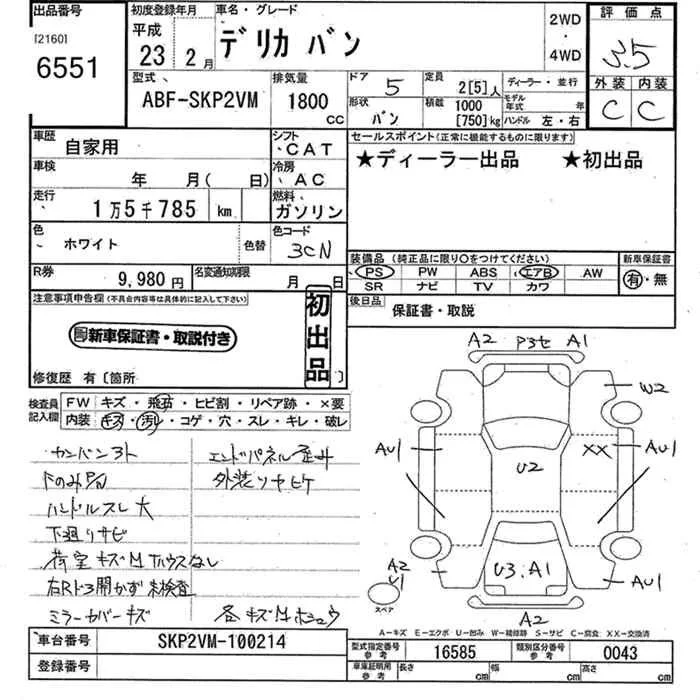 出品番号 初度登録年月 車名・グレード 2WD ・ 4WD 評価点
[2160] 6551 平成 23 2月 デリカ バン 3.5
型式、 ABF-SKP2VM 排気量 1800 CC ドア 5 定員 2[5]人 ディーラー・並行 外装 内装
形状 バン 積載 1000 [750]kg モデル年式 年 ハンドル 左・右 C C
車歴 自家用 シフト、CAT セールスポイント(正常に機能するものに限ります)
車検 年 月( 日) 冷房、AC ★ディーラー出品 ★初出品
走行 1万5千785 km 燃料、ガソリン
色、ホワイト 色替 色コード 3CN
装備品(純正品に限り○をつけてください) 新車保証書
PS PW ABS エアB AW 有・無
SR ナビ TV カワ
R券 9,980円 名変通知期限 月 日
後日品 保証書・取説
注意事項申告欄(不具合内容等は具体的に記入して下さい) 初出品
新車保証書・取説付き
修復歴 有〔箇所 〕
検査員記入欄 FW キズ・飛石・ヒビ割・リペア跡・×要
内装 キズ・汚レ・コゲ・穴・スレ・キレ・破レ
カンバン跡 エンドパネル歪み
外装ソケ
ハンドルスレ大
下廻りサビ
荷室キズM
右Rドア開かず未検査
ミラーカバーキズ 各キズM
A2 P3セ A1
W2
AU1 XX AU1
U2
A2 U1 U3.A1 AU1
スペア A2
A-キズ E-エクボ U-凹み W-補修跡 S-サビ C-腐食 XX-交換済
車台番号 SKP2VM-100214
型式指定番号 参考 16585 類別区分番号 参考 0043
登録番号
車庫証明用 参考 長さ cm 幅 cm 高さ cm